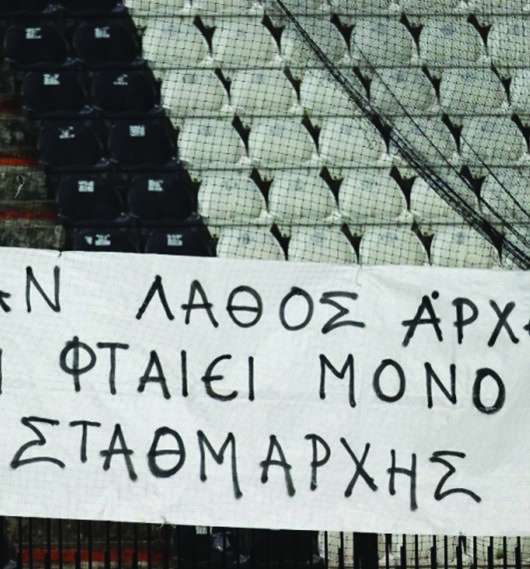 ΛΑΘΟΣ
ΦΤΑΙΕΙ ΜΟΝΟ
ΣΤΑΘΜΑΡΧΗΣ